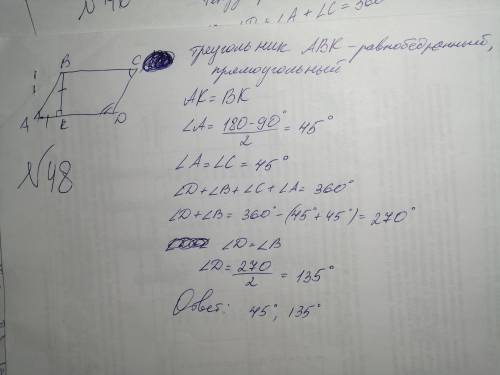 N 48
B C
A K D
треугольник ABK - равнобедренный,
прямоугольный
AK = BK
∠A = (180-90°)/2 = 45°
∠A = ∠C = 45°
∠D + ∠B + ∠C + ∠A = 360°
∠D + ∠B = 360° - (45° + 45°) = 270°
∠D = ∠B
∠D = 270/2 = 135°
Ответ: 45°; 135°